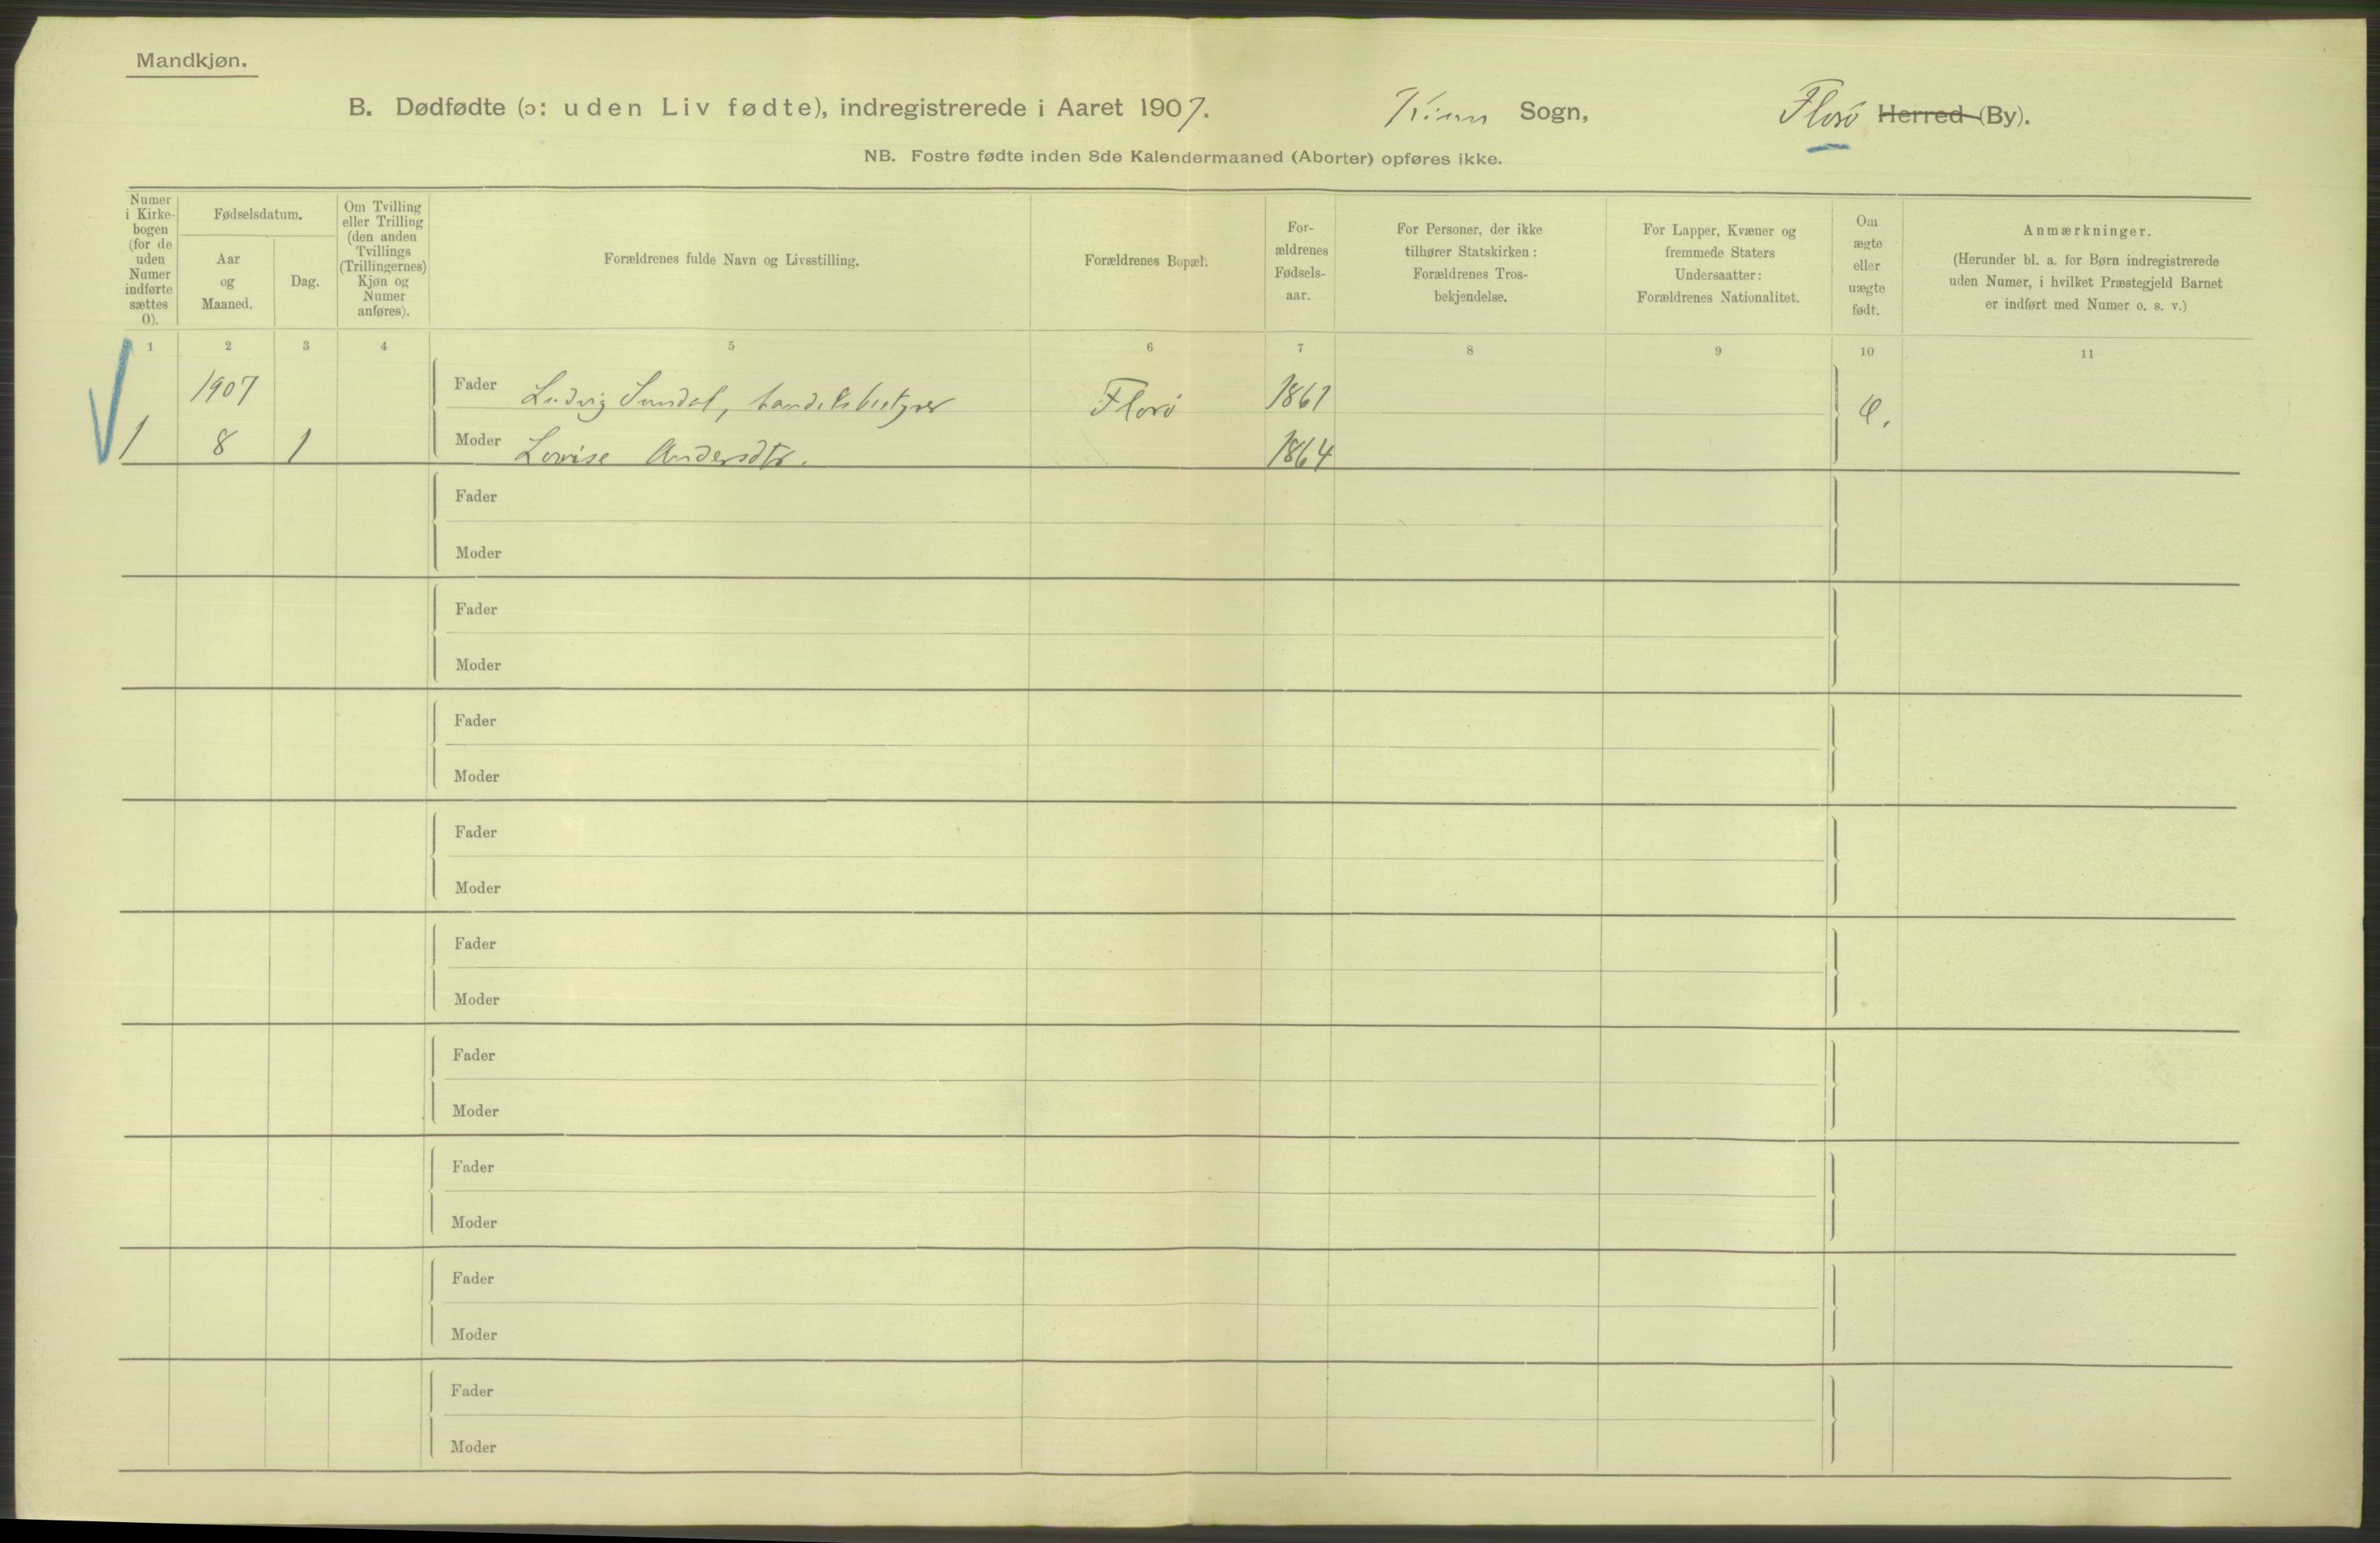 Mandkjøn.
B. Dødfødte (ɔ: uden Liv fødte), indregistrerede i Aaret 1907. Kinn Sogn, Florø Herred (By).
NB. Fostre fødte inden 8de Kalendermaaned (Aborter) opføres ikke.
Numer
i Kirke-
bogen
(for de
uden
Numer
indførte
sættes
0).
Fødselsdatum.
Aar
og
Maaned.
Dag.
Om Tvilling
eller Trilling
(den anden
Tvillings
(Trillingernes)
Kjøn og
Numer
anføres).
Forældrenes fulde Navn og Livsstilling.
Forældrenes Bopæl.
For-
ældrenes
Fødsels-
aar.
For Personer, der ikke
tilhører Statskirken:
Forældrenes Tros-
bekjendelse.
For Lapper, Kvæner og
fremmede Staters
Undersaatter:
Forældrenes Nationalitet.
Om
ægte
eller
uægte
født.
Anmærkninger.
(Herunder bl. a. for Børn indregistrerede
uden Numer, i hvilket Præstegjeld Barnet
er indført med Numer o. s. v.)
1 2 3 4 5 6 7 8 9 10 11
1907 Fader Ludvig Sundal, handelsbestyrer Florø 1861
1 8 1 Moder Lovise Andersdtr. 1864
Fader
Moder
Fader
Moder
Fader
Moder
Fader
Moder
Fader
Moder
Fader
Moder
Fader
Moder
Fader
Moder
Fader
Moder